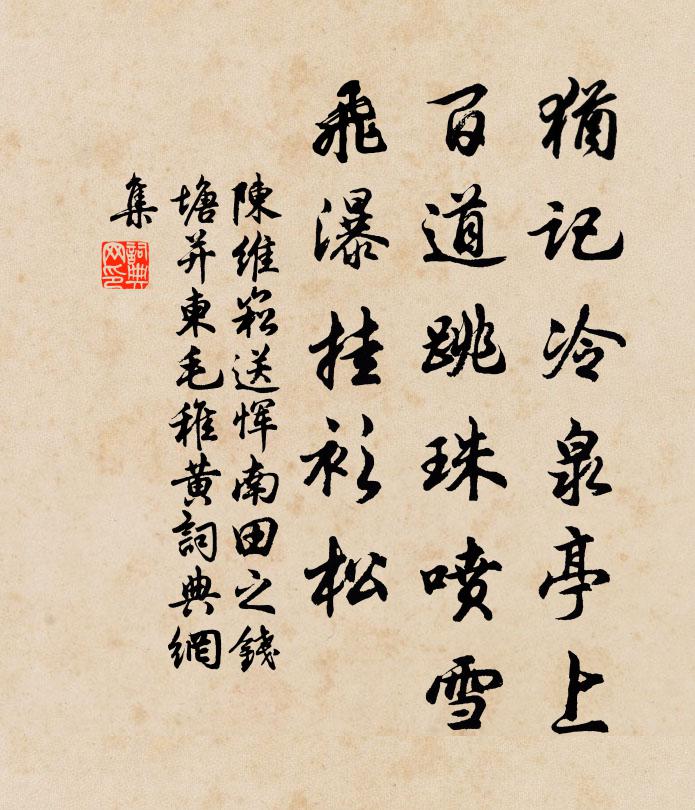 猶記冷泉亭上
百道跳珠噴雪
飛瀑挂衫松
陳維崧送恽南田之錢
塘并柬毛稚黄詞典網
集
詞典網印